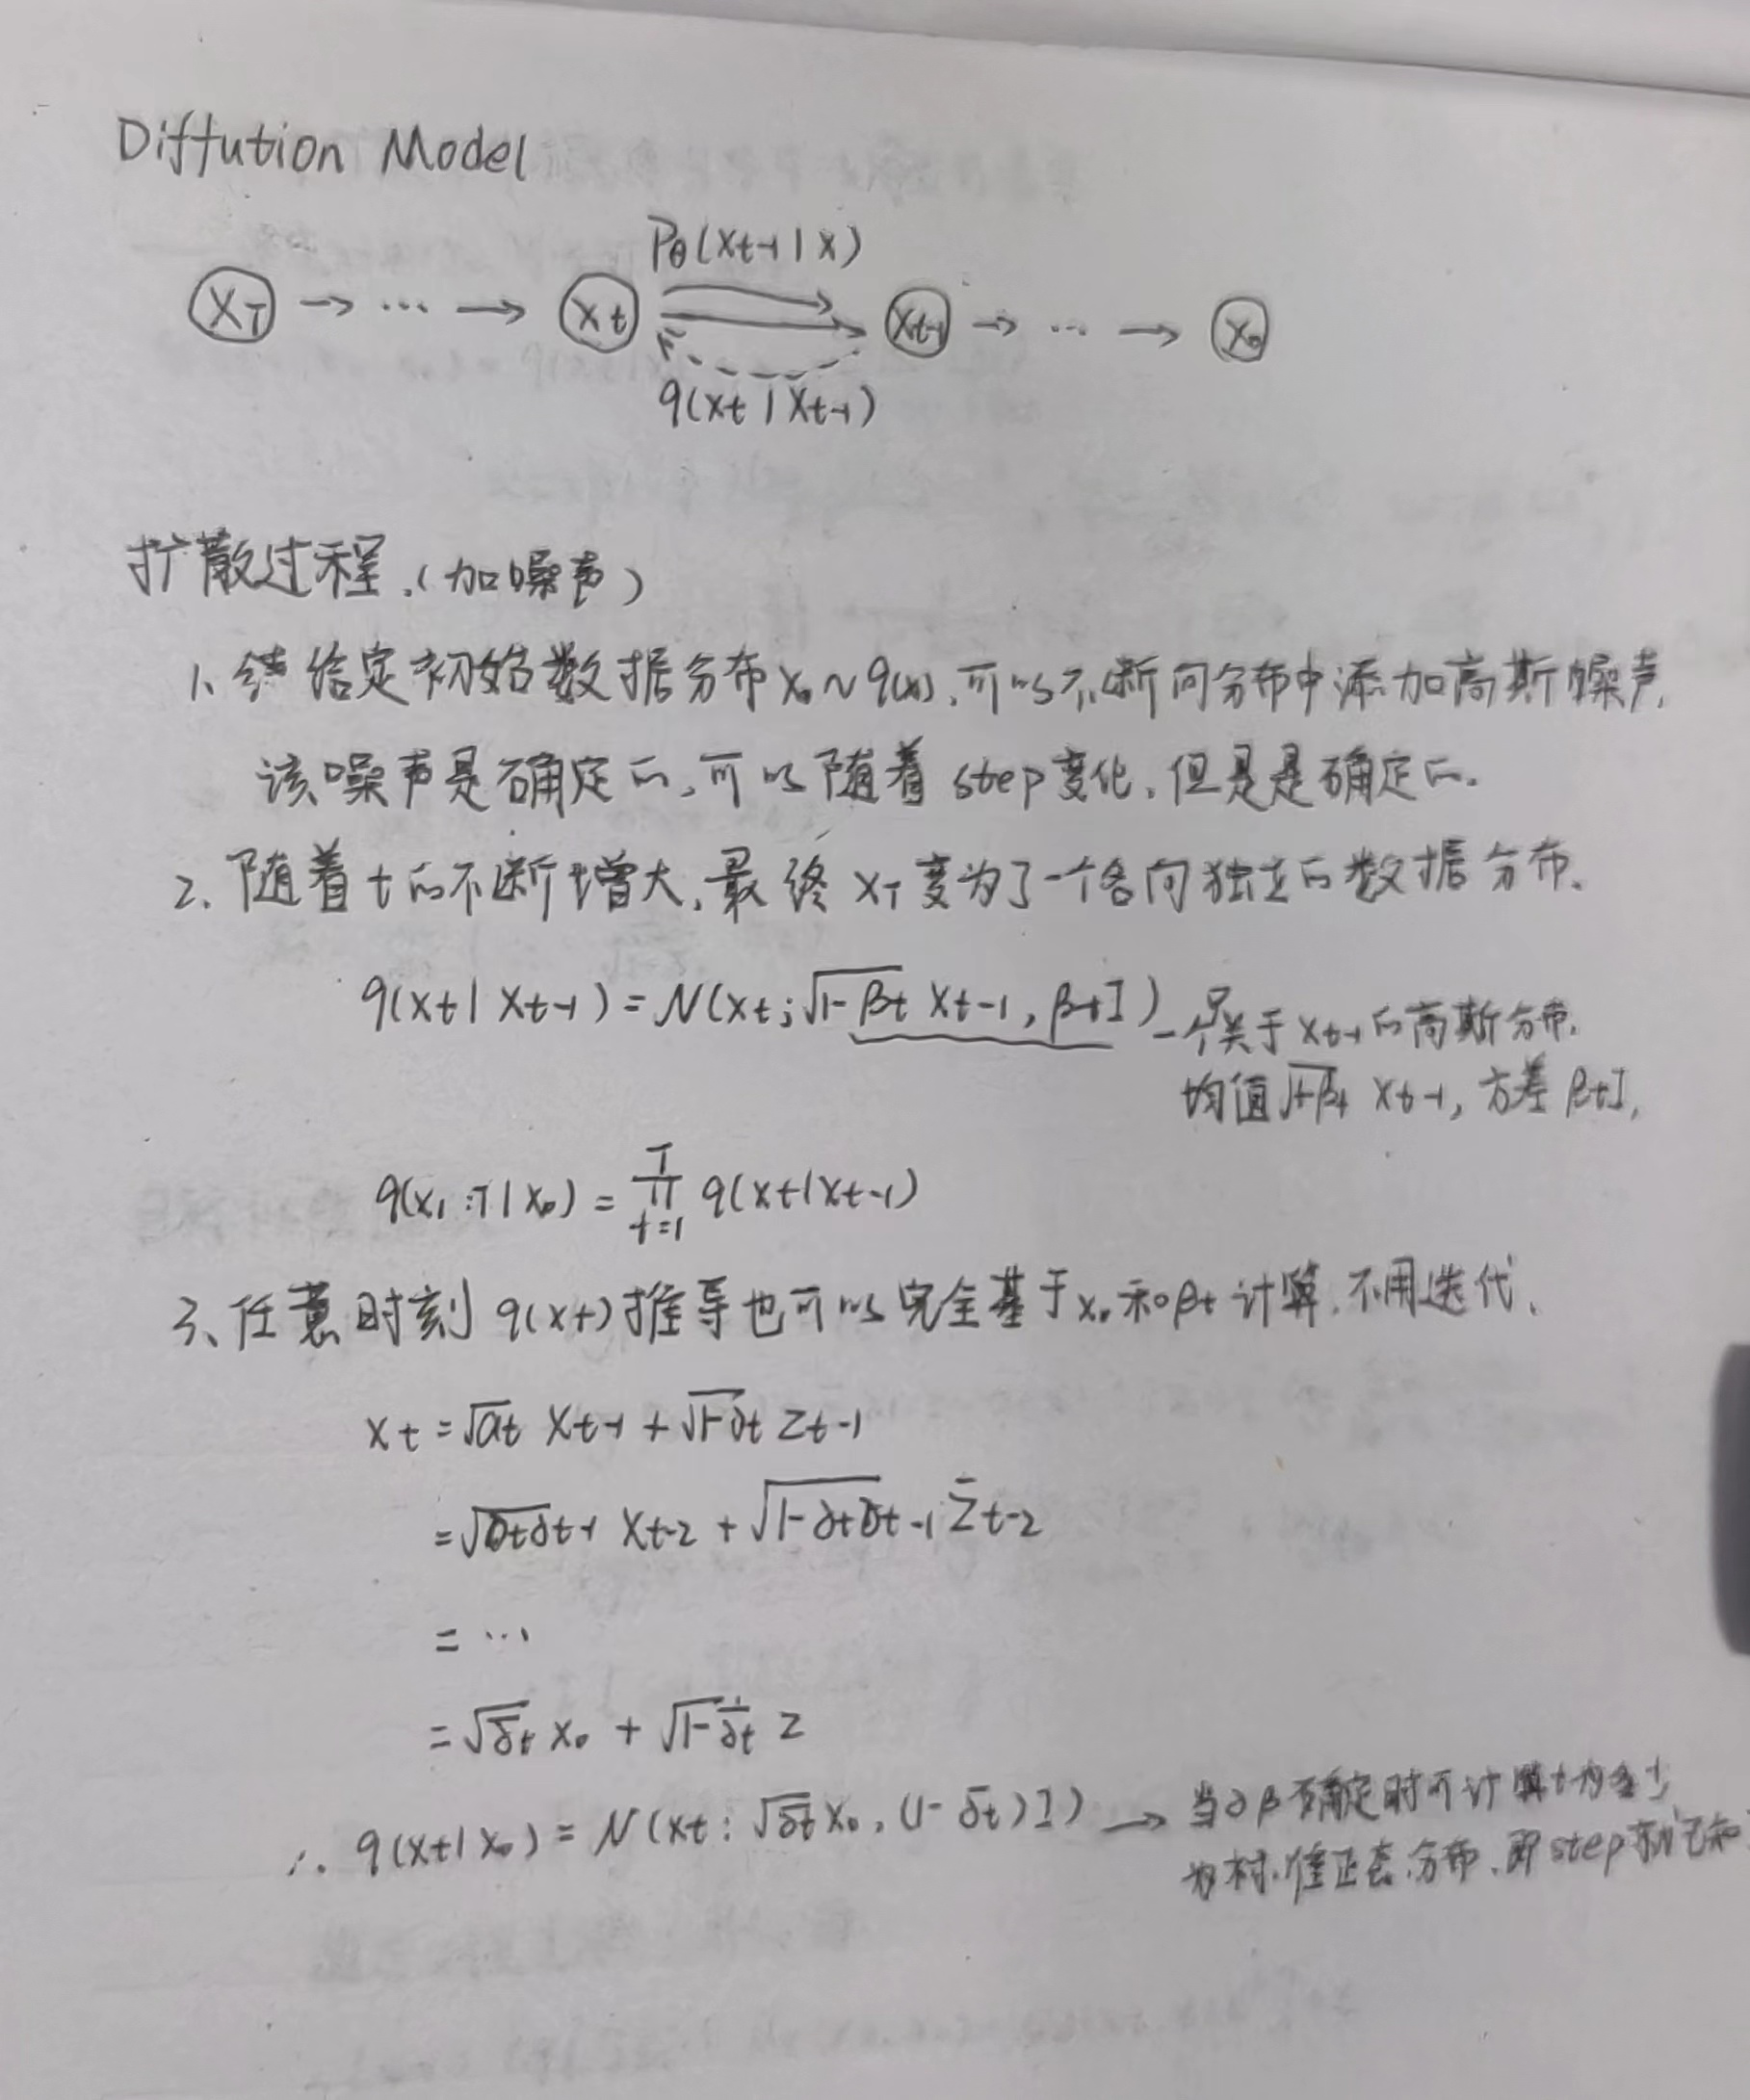 Diffution Model
Pθ(Xt-1|X)
XT → ... → Xt Xt-1 → ... → X0
q(Xt|Xt-1)
扩散过程.(加噪声)
1、给定初始数据分布X0~q(x),可以不断向分布中添加高斯噪声,
该噪声是确定的,可以随着step变化,但是是确定的.
2、随着t的不断增大,最终XT变为了一个各向独立的数据分布.
q(Xt|Xt-1)=N(Xt;√(1-βt) Xt-1, βtI) 一个关于Xt-1的高斯分布.
均值√(1-βt) Xt-1, 方差βtI,
q(X1:T|X0)=∏(t=1→T) q(Xt|Xt-1)
3、任意时刻q(Xt)推导也可以完全基于X0和βt计算,不用迭代.
Xt=√αt Xt-1+√(1-αt) Zt-1
=√(αtαt-1) Xt-2+√(1-αtαt-1) Z̄t-2
=...
=√ᾱt X0+√(1-ᾱt) Z
∴q(Xt|X0)=N(Xt:√ᾱt X0,(1-ᾱt)I) → 当αβ确定时可计算t为多少
为标准正态分布,即step就已知